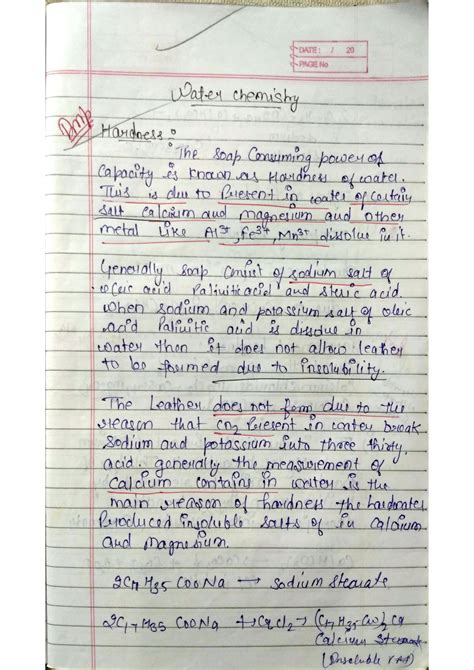 DATE: / 20
PAGE No
Water chemistry
Imp
Hardness :
: The soap Consuming power of
Capacity is known as Hardness of water.
This is due to Present in water of Certain
salt calcium and magnesium and other
metal like Al3+, Fe3+, Mn3+ dissolve in it.
Generally soap Consist of sodium salt of
oleic acid Palmitic acid and steric acid.
when sodium and potassium salt of oleic
acid Palmitic acid is dissolve in
water then it does not allow leather
to be formed due to insolubility.
The Leather does not form due to the
reason that CO2 Present in water break
Sodium and potassium into three thirty
acid. generally the measurement of
Calcium contains in water is the
main reason of hardness the hardwater
Produced insoluble salts of in calcium
and magnesium.
2C17H35COONa → Sodium Stearate
2C17H35COONa + CaCl2 → (C17H35COO)2Ca
Calcium Stearate
(Insoluble